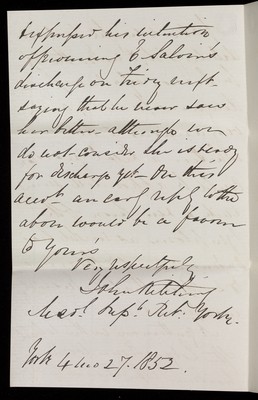 expressed his intention
of removing E Salvin's
discharge on friday next.
saying that he never saw
her better. although we
do not consider she is ready
for discharge yet. On this
acct. an early reply to the
above would be a favour
to Yours
Very respectfully
John Kitching
Medl. Supt. Retr. York.
York 4 mo 27. 1852.